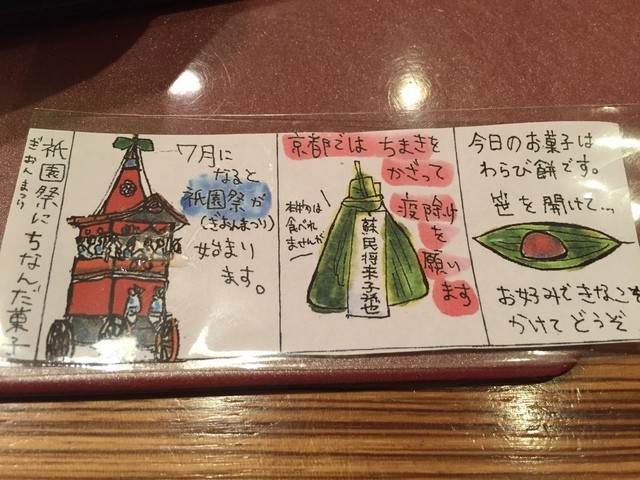 祇園祭にちなんだ菓子
ぎおんまつり
7月に
なると
祇園祭が
(ぎおんまつり)
始まり
ます。
京都では ちまきを
かざって
疫除け
を
願い
ます
本物は
食べれ
ませんが
蘇民将来子孫也
今日のお菓子は
わらび餅です。
笹を開けて...
お好みできなこを
かけてどうぞ